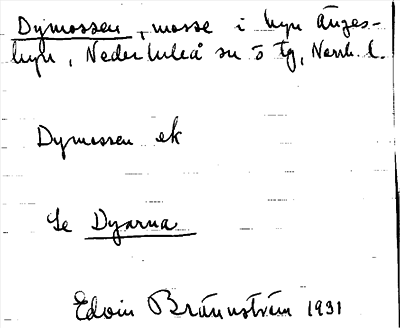 Dymossen, mosse i byn Ängesbyn, Nederluleå sn o tg, Norrb. l.
Dymossen ek
Se Dyarna
Edvin Brännström 1931